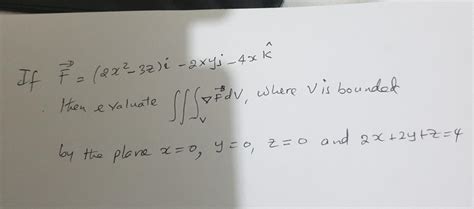 If F⃗ = (2x²-3z)i - 2xyj - 4x k̂
then evaluate ∭_V ∇F⃗ dV, where V is bounded
by the plane x=0, y=0, z=0 and 2x+2y+z=4